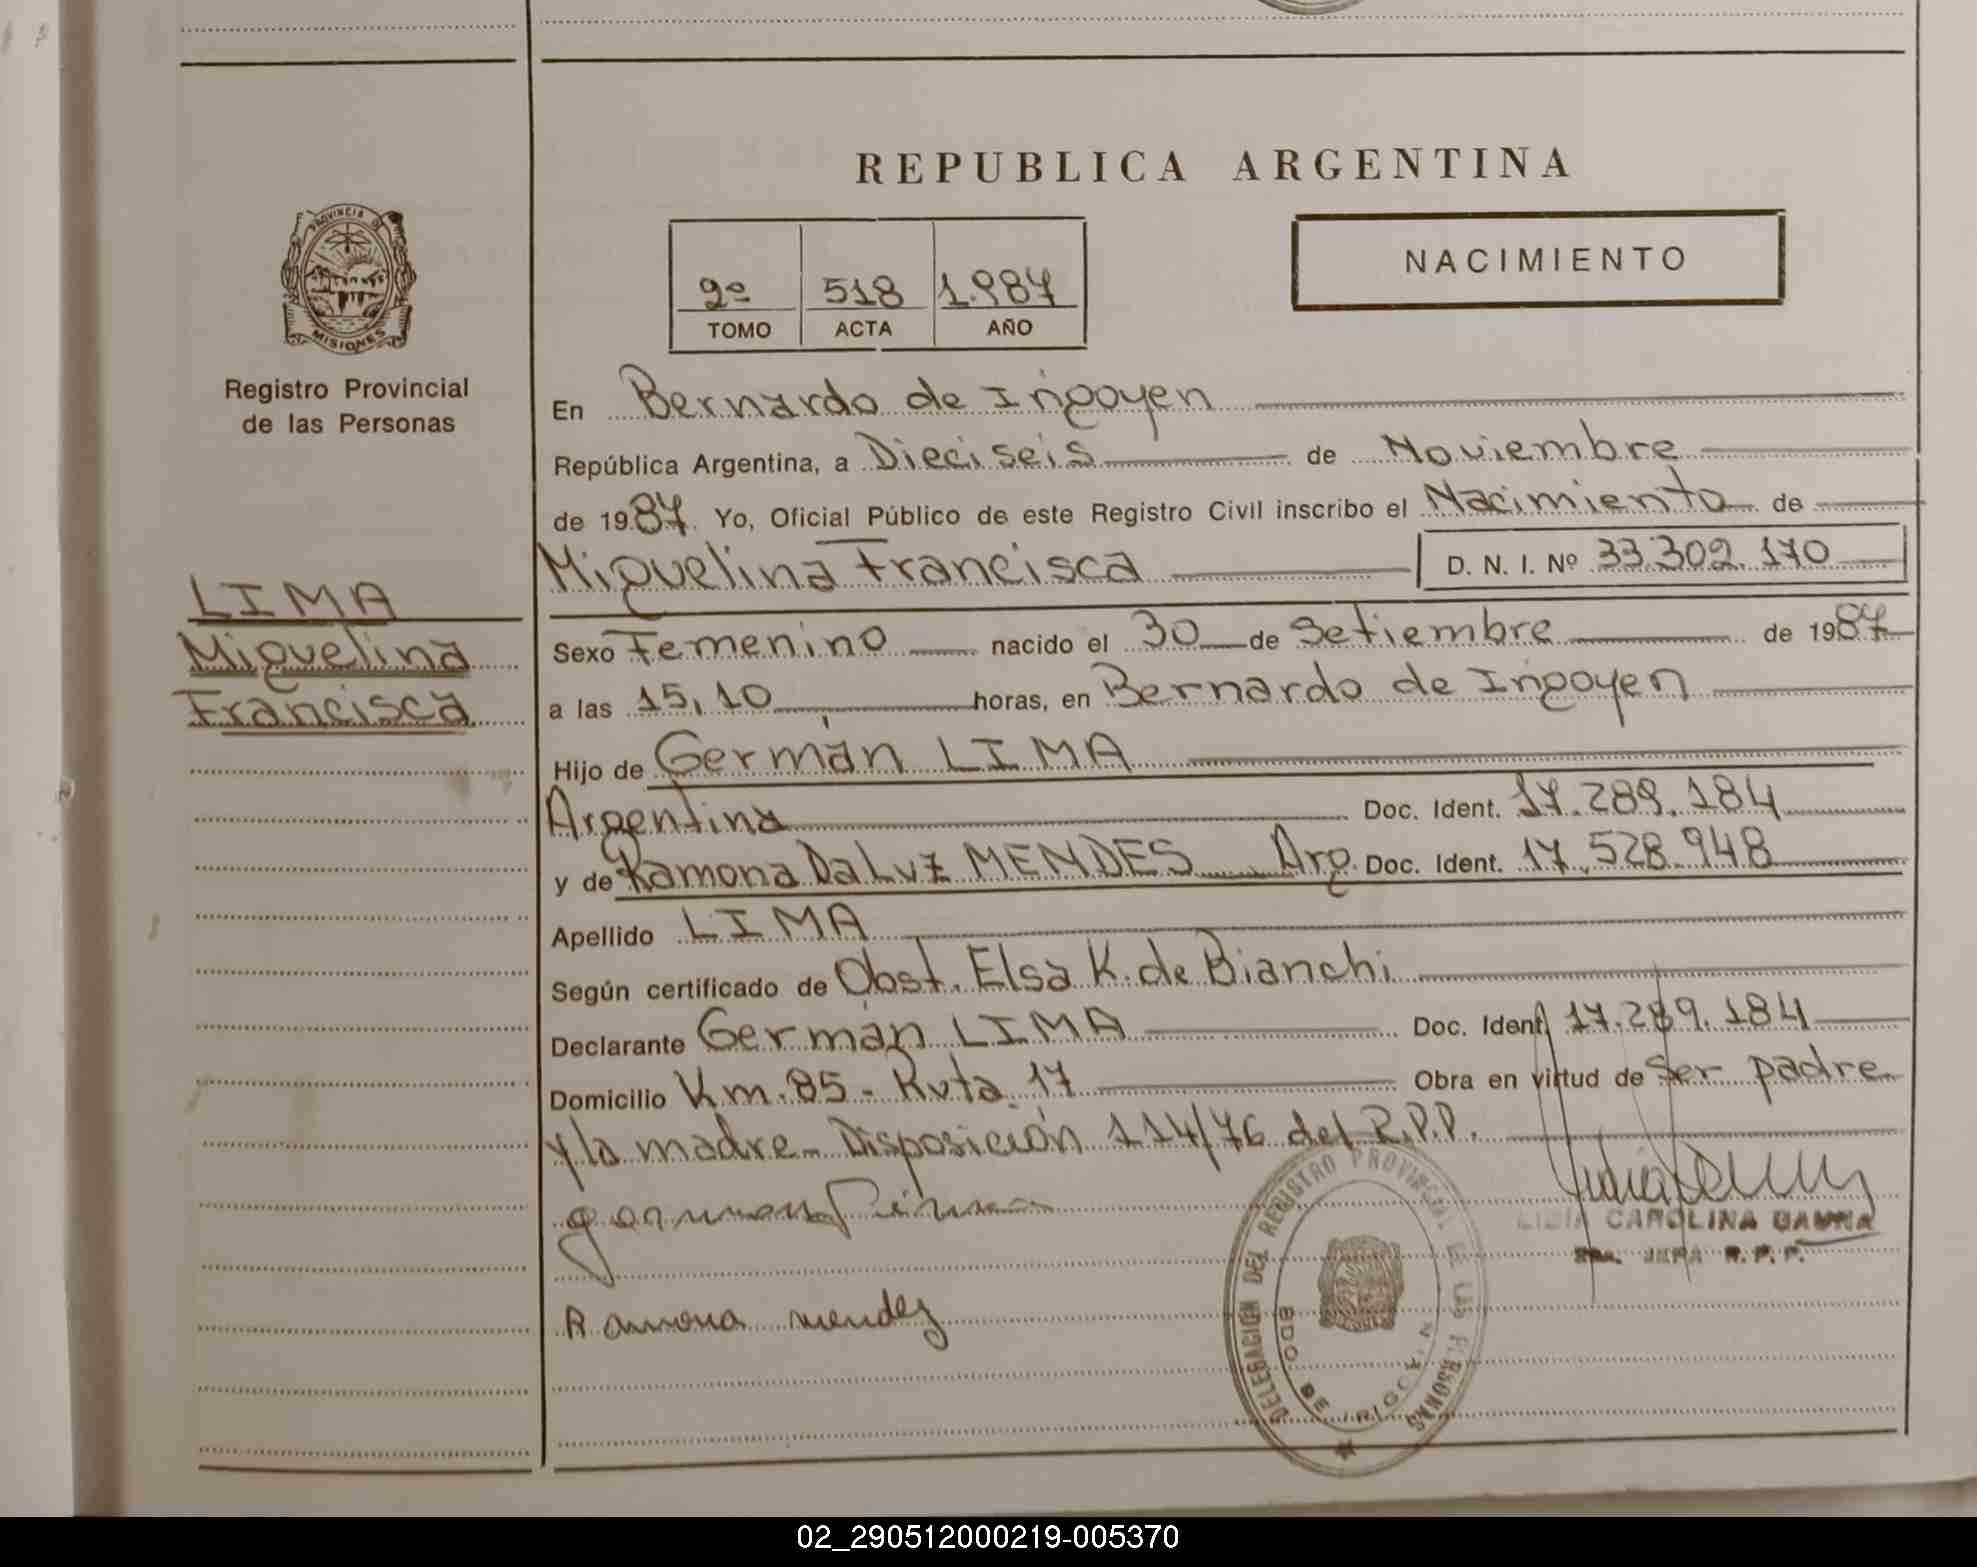 REPUBLICA ARGENTINA
PROVINCIA DE
MISIONES
Registro Provincial
de las Personas
2º 518 1.987
TOMO ACTA AÑO
NACIMIENTO
En Bernardo de Irigoyen
República Argentina, a Dieciseis de Noviembre
de 1987. Yo, Oficial Público de este Registro Civil inscribo el Nacimiento de
Miguelina Francisca D. N. I. Nº 33.302.170
LIMA
Miguelina
Francisca
Sexo Femenino nacido el 30 de Setiembre de 1987
a las 15,10 horas, en Bernardo de Irigoyen
Hijo de Germán LIMA
Argentina Doc. Ident. 17.289.184
y de Ramona Da Luz MENDES Arg. Doc. Ident. 17.528.948
Apellido LIMA
Según certificado de Obst. Elsa K. de Bianchi
Declarante Germán LIMA Doc. Ident. 17.289.184
Domicilio Km. 85 - Ruta 17 Obra en virtud de Ser padre
y la madre - Disposición 114/76 del R.P.P.
german lima
Ramona mendez
LIDIA CAROLINA
JEFA R. P. P.
DELEGACIÓN DEL REGISTRO PROVINCIAL DE LAS PERSONAS
BDO. DE IRIGOYEN
02_290512000219-005370